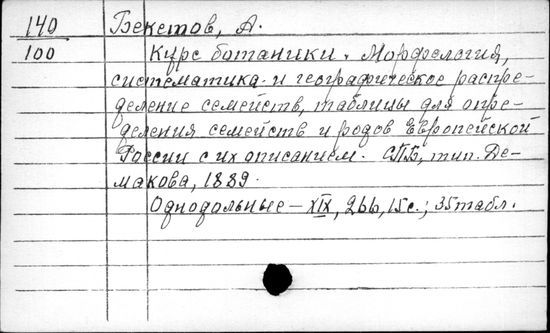 140 Бекетов, А.
100 Курс ботаники. Морфология,
систематика и географическое распре-
деление семейств, таблицы для опре-
деления семейств и родов Европейской
России с их описанием. СПБ, тип. Де-
макова, 1889.
Однодольные – XIX, 266, 15 с.; 35 табл.